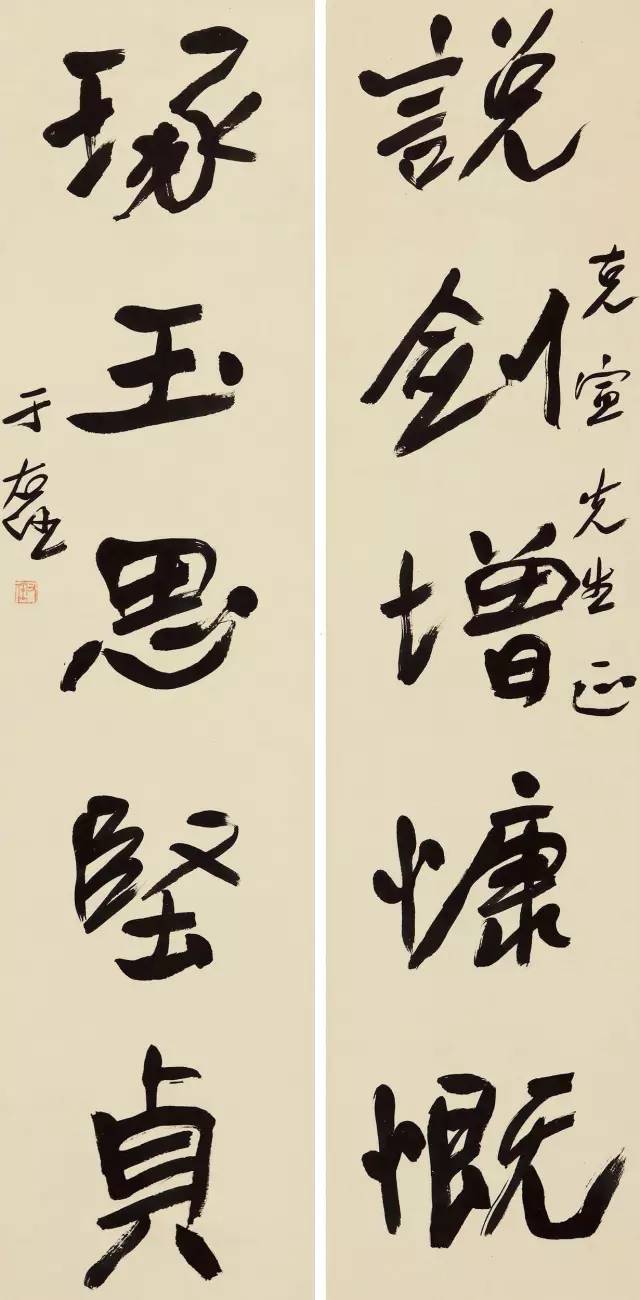 說劍增慷慨
克宣先生正
琢玉思堅貞
于右任